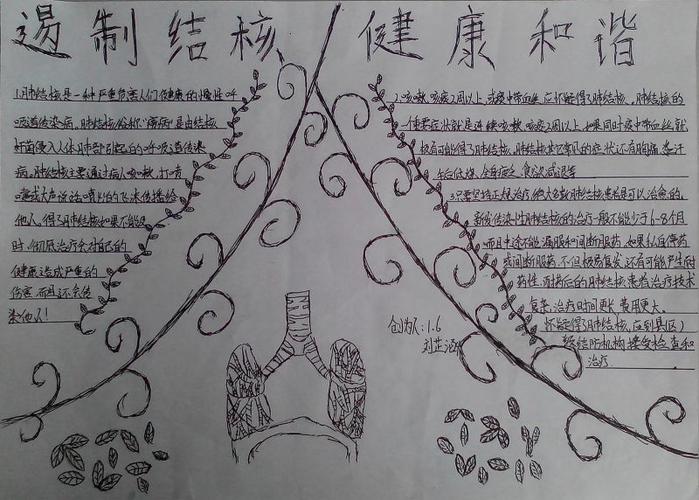 遏制结核 健康和谐
1.肺结核是一种严重危害人们健康的慢性呼
吸道传染病,肺结核俗称"痨病"是由结核
杆菌侵入人体肺部引起的呼吸道传染
病,肺结核主要通过病人咳嗽,打喷
嚏或大声说话喷出的飞沫传播给
他人。得了肺结核如果不能及
时,彻底治疗会对自己的
健康造成严重的
伤害,而且还会传
染他人!
2.咳嗽,咳痰2周以上,或痰中带血丝,应怀疑得了肺结核。肺结核的
主要症状就是连续咳嗽、咳痰2周以上,如果同时痰中带血丝,就
极有可能得了肺结核,肺结核其它常见的症状还有胸痛,盗汗
午后低烧,全身疲乏,食欲减退等
3.只要坚持正规治疗,绝大多数肺结核患者是可以治愈的。
新发传染性肺结核的治疗一般不能少于6-8个月
而且中途不能漏服和间断服药。如果私自停药
或间断服药,不但极易复发,还有可能产生耐
药性,耐药后的肺结核患者治疗技术
复杂,治疗时间更长,费用更大。
怀疑得了肺结核,应到县(区)
级结防机构接受检查和
治疗
创办人:1.6
刘芷涵